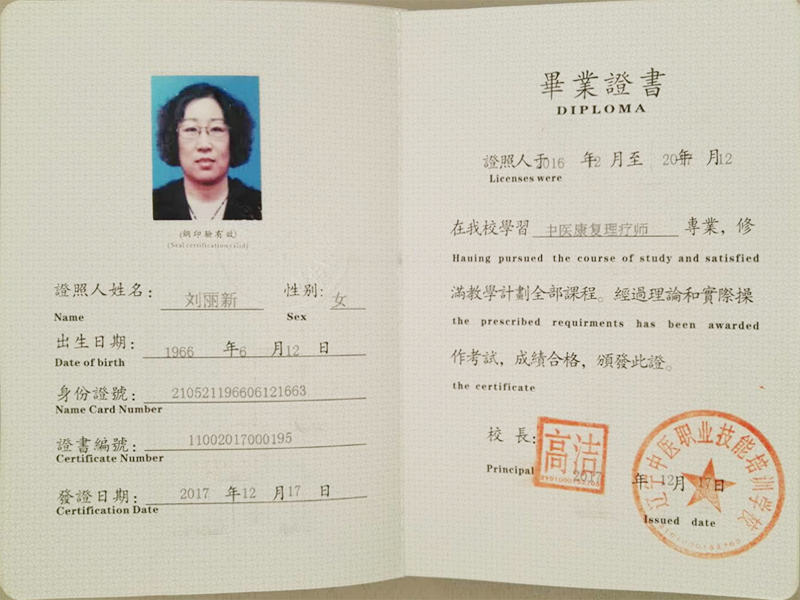 (鋼印驗有效)
(Seal certification valid)
證照人姓名: 刘丽新 性別: 女
Name Sex
出生日期: 1966 年 6 月 12 日
Date of birth
身份證號: 210521196606121663
Name Card Number
證書編號: 11002017000195
Certificate Number
發證日期: 2017 年 12 月 17 日
Certification Date
畢業證書
DIPLOMA
證照人于 016 年 2 月至 20 年 月 12
Licenses were
在我校學習 中医康复理疗师 專業，修
Hauing pursued the course of study and satisfied
滿教學計劃全部課程。經過理論和實際操
the prescribed requirments has been awarded
作考試，成績合格，頒發此證。
the certificate
校長: 高洁
Principal
2017 年 12 月 17 日
Issued date
辽宁中医职业技能培训学校